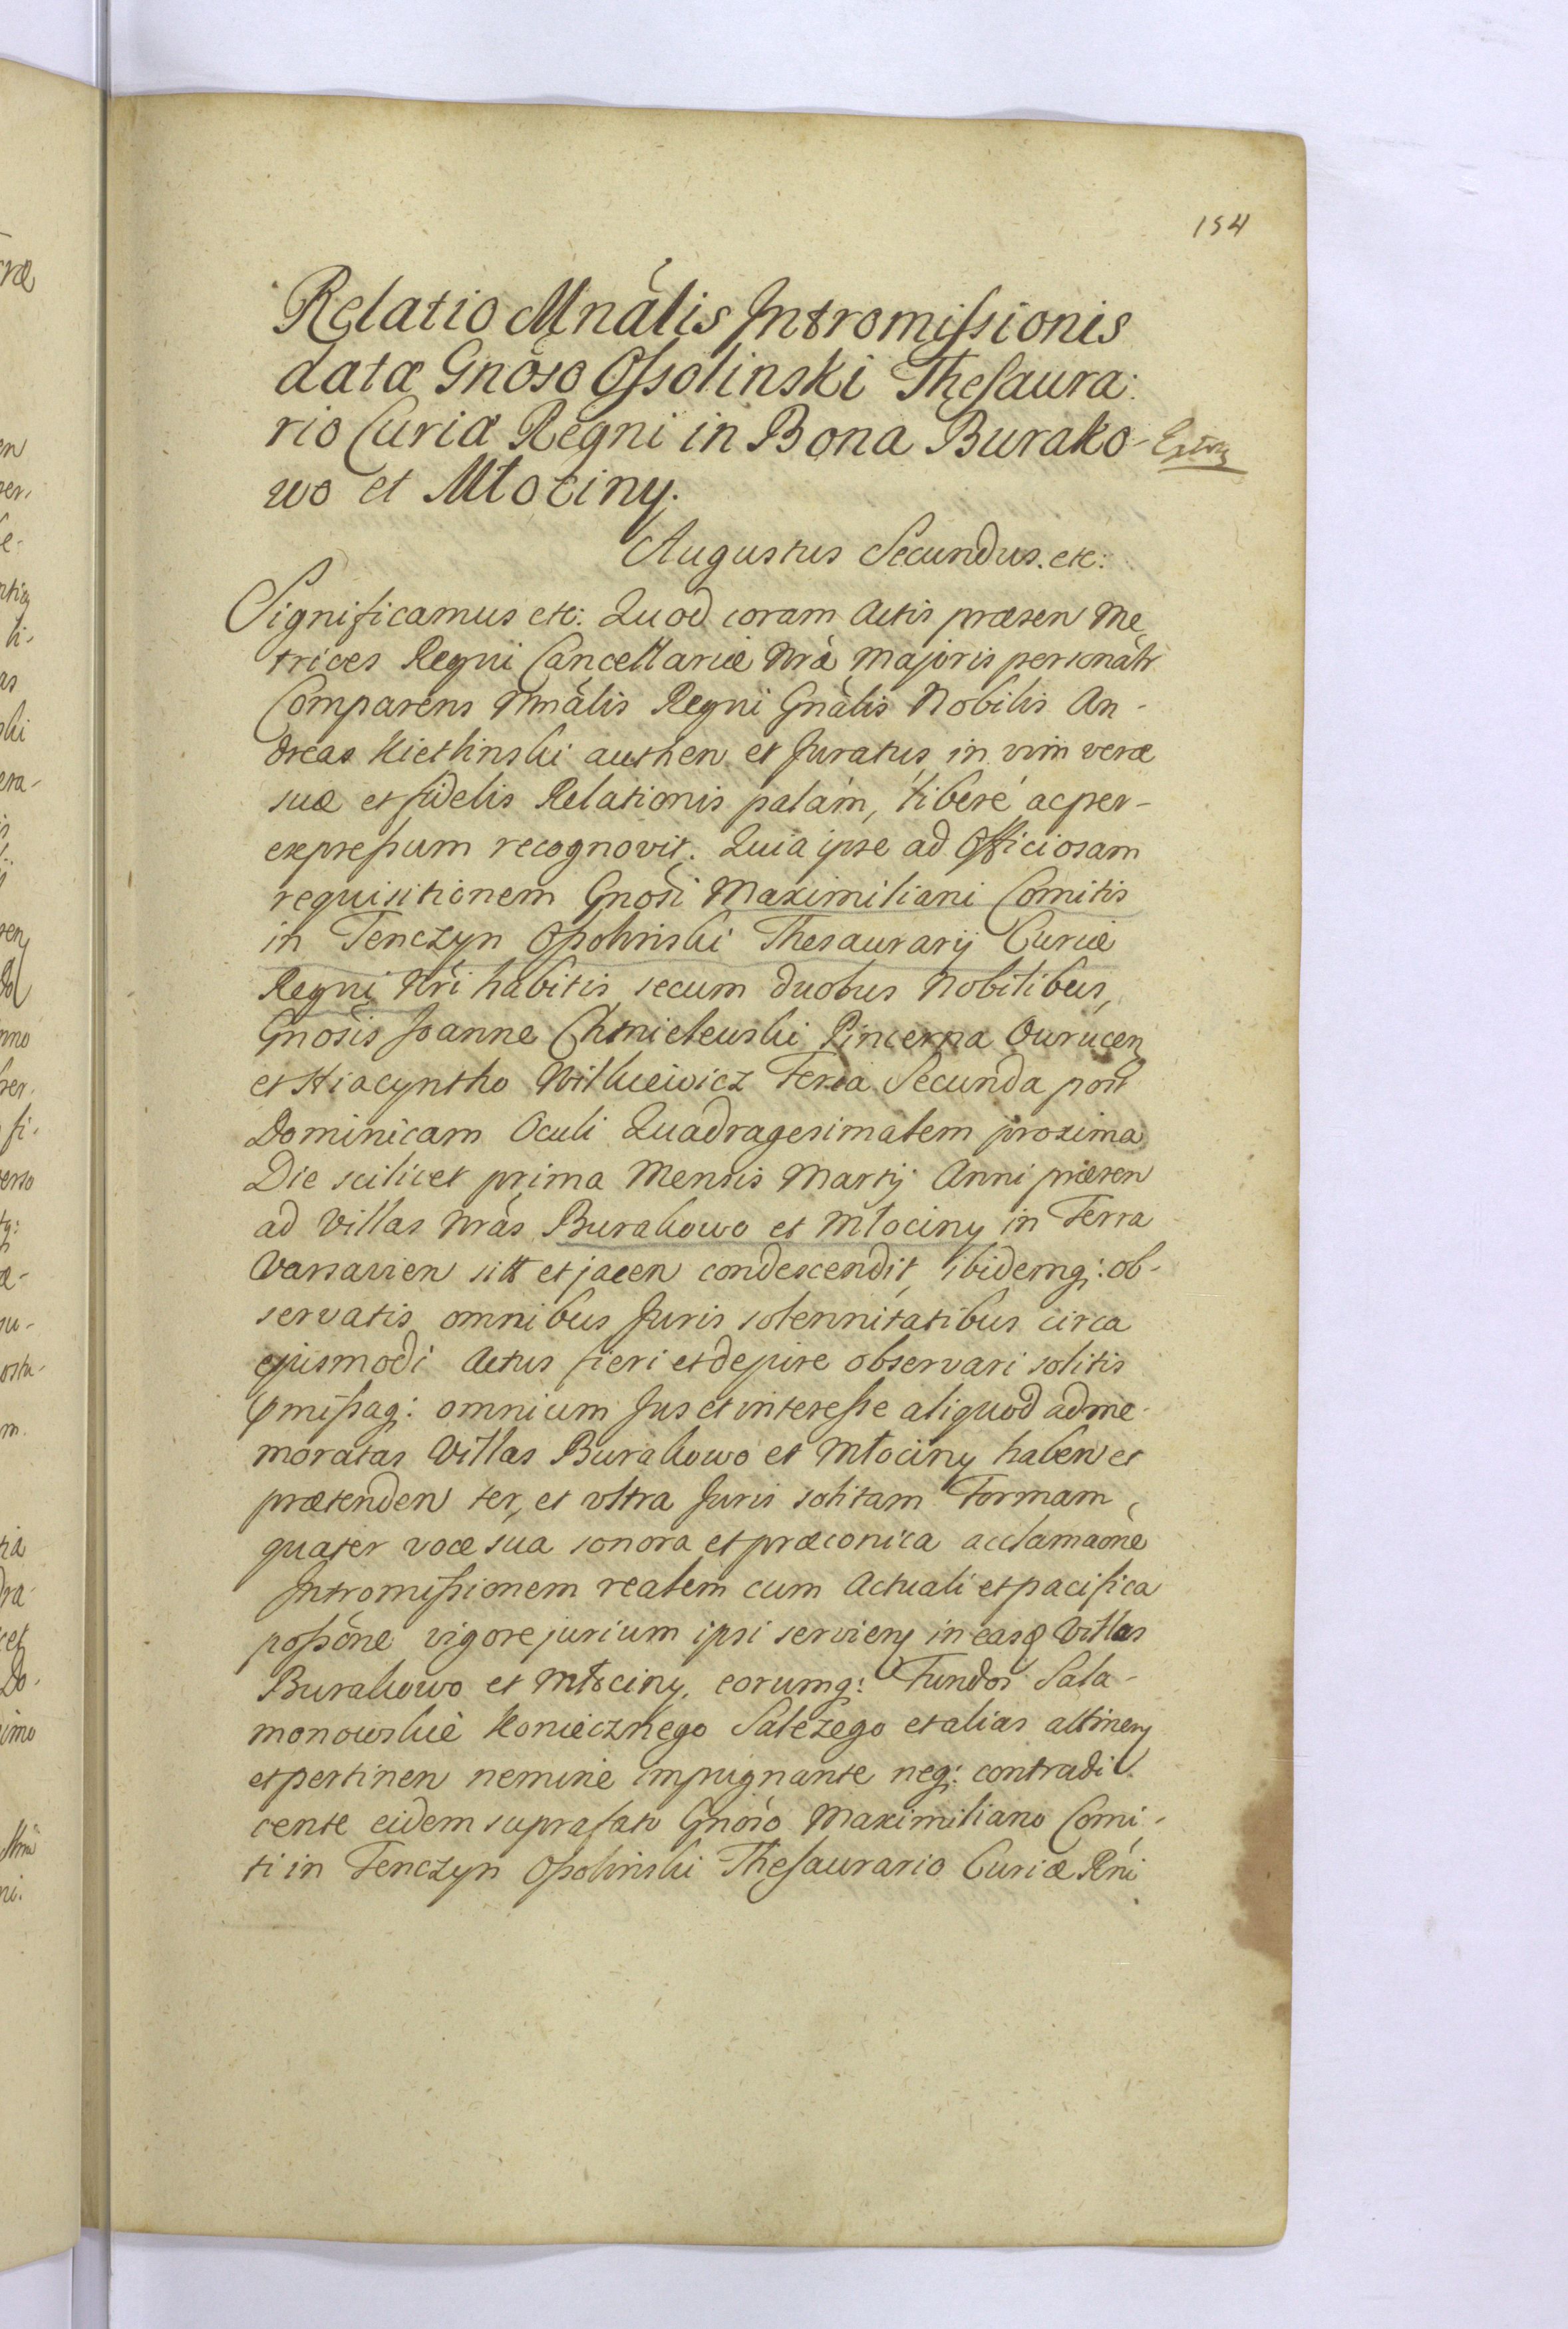 154
Relatio Mnãlis Intromissionis
datæ Gnoso Ossolinski Thesaura:
rio Curiæ Regni in Bona Burako-
wo et Młociny.
Augustus Secundus. etc:
Significamus etc: Quod coram Actis præsen Me
trices Regni Cancellariæ Nrã Majoris personãlr
Comparens Mnãlis Regni Gnãlis Nobilis An-
dreas Kietlinski authen et Juratus in vim veræ
suæ et fidelis Relationis palam, libere ac per-
expressum recognovit. Quia ipse ad Officiosam
requisitionem Gnosi Maximiliani Comitis
in Tenczyn Ossolinski Thesaurarij Curiæ
Regni Nri habitis secum duobus Nobilibus,
Gnosis Joanne Chmielewski Pincerna Ovrucen
et Hiacyntho Witkiewicz Feria Secunda post
Dominicam Oculi Quadragesimalem proxima
Die scilicet prima Mensis Martij Anni præsen
ad Villas Nrãs Burakowo et Młociny in Terra
Varsavien sitt et jacen condescendit, ibidemq: ob-
servatis omnibus Juris solennitatibus circa
ejusmodi Actus fieri et de jure observari solitis
pmissaq: omnium Jus et interesse aliquod ad me-
moratas Villas Burakowo et Młociny haben et
prætenden ter, et ultra Juris solitam Formam,
quater voce sua sonora et præconica acclamaõne
Intromissionem realem cum Actuali et pacifica
possõne vigore jurium ipsi servien in easq Villas
Burakowo et Młociny, eorumq: Fundos Sala-
monowskie Koniecznego Salezego et alias attinen
et pertinen nemine impugnante neq: contradi
cente eidem suprafato Gnoso Maximiliano Comi-
ti in Tenczyn Ossolinski Thesaurario Curiæ Rni